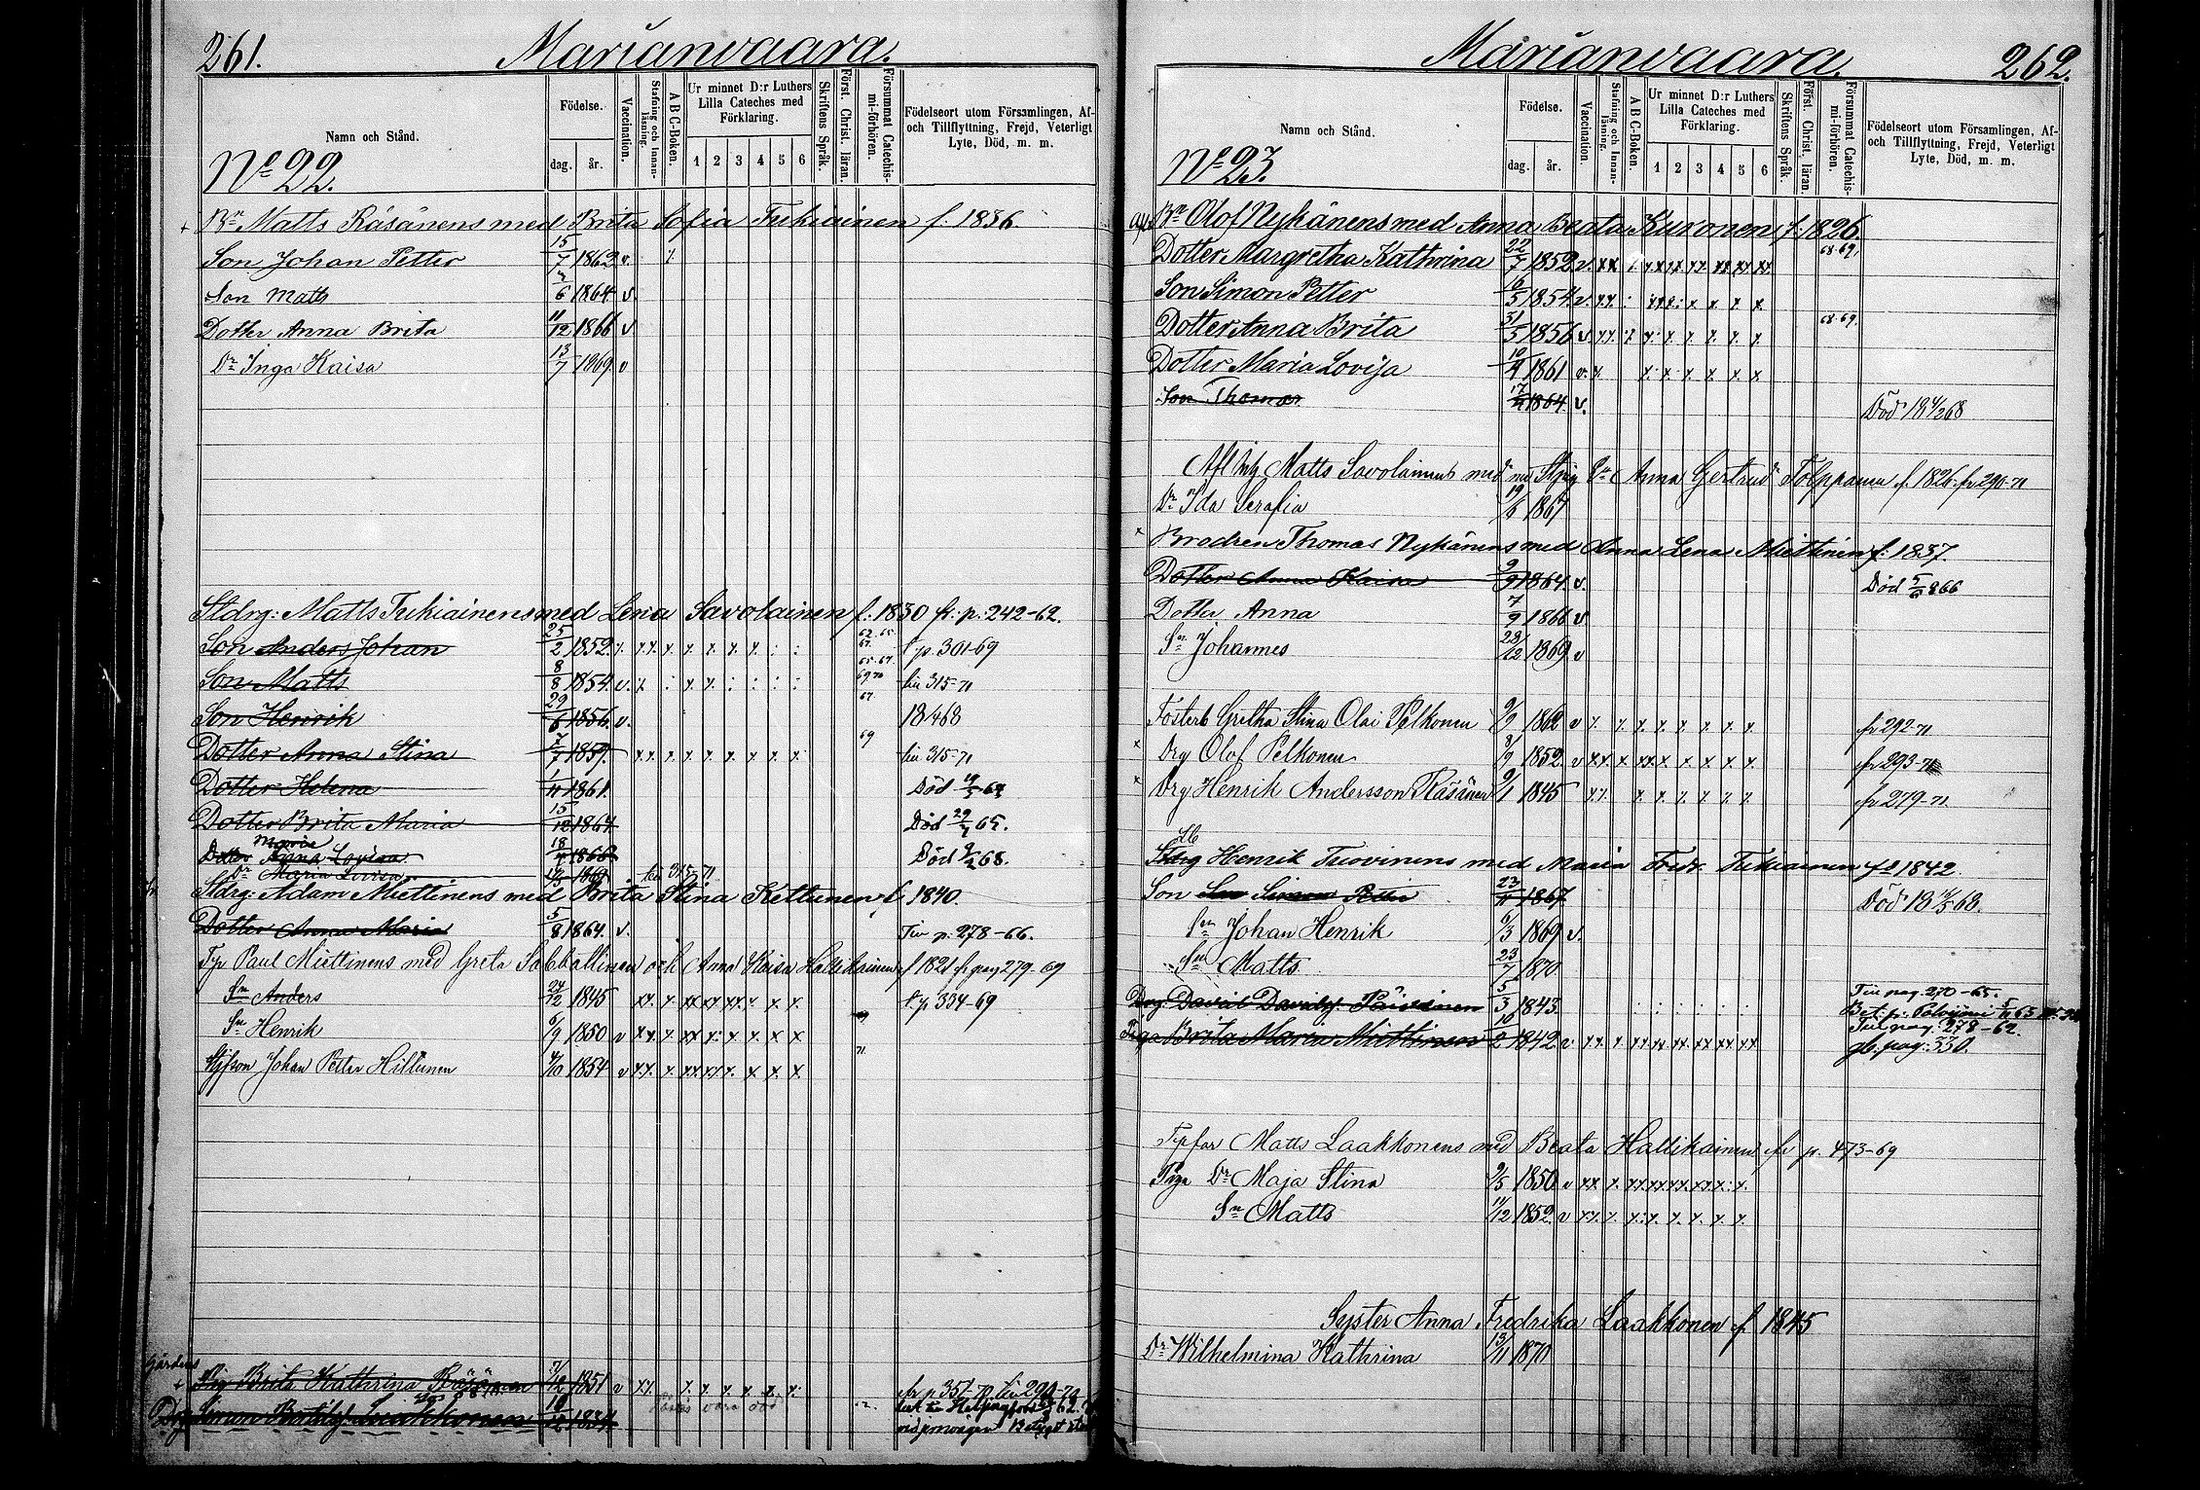 261. Marianvaara.
Namn och Stånd.
Födelse.
dag. år.
Vaccination.
Stafning och Innanläsning.
A B C-Boken.
Ur minnet D:r Luthers Lilla Cateches med Förklaring.
1 2 3 4 5 6
Skriftens Språk.
Först. Christ. läran.
Försummat Catechismi-förhören.
Födelseort utom Församlingen, Af- och Tillflyttning, Frejd, Veterligt Lyte, Död, m. m.
No 22.
Bn Matts Räsänens med Brita Sofia Tukiainen f. 1836
Son Johan Petter 15/7 1862 v.
Son Matts 7/6 1864 v.
Dotter Anna Brita 11/12 1866 v
Dr Inga Kaisa 13/7 1869 v
Stdrg: Matts Tukiainens med Lena Savolainen f. 1830 fr: p: 242-62.
Son Anders Johan 25/2 1852 t p. 301-69
Son Matts 8/8 1854 v. till 315-71
Son Henrik 29/6 1856 v. 1868
Dotter Anna Stina 7/7 1859. till 315-71
Dotter Helena 1/11 1861. Död
Dotter Brita Maria 15/12 1864 Död 65.
Dotter Anna Lovisa Maria 18 1866 Död 68.
Dr Maria Lovisa 1869 till 315-71
Stdrg: Adam Miettinens med Brita Stina Kettunen f. 1840.
Dotter Anna Maria 5/8 1864. v. Till p: 278-66.
Paul Miettinens med Greta och Anna Kaisa Hallikainen f 1821 fr pag 279-69
Sn Anders 24/12 1845 t p 334-69
Sn Henrik 6/9 1850 v
Styfson Johan Petter Hiltunen 4/10 1854 v 71.
Gårdens
Pig Brita Kathrina Räsänen 1851 v fr p 351-70 till 290-70
Drg Simon 1834 Helsingfors 62
262. Marianvaara.
Namn och Stånd.
Födelse.
dag. år.
Vaccination.
Stafning och Innanläsning.
A B C-Boken.
Ur minnet D:r Luthers Lilla Cateches med Förklaring.
1 2 3 4 5 6
Skriftens Språk.
Först. Christ. läran.
Försummat Catechismi-förhören.
Födelseort utom Församlingen, Af- och Tillflyttning, Frejd, Veterligt Lyte, Död, m. m.
No 23.
Bn Olof Nykänens med Anna Beata Kukonen f. 1826.
Dotter Margretha Kathrina 22/7 1852 v. 68.69.
Son Simon Petter 16/5 1854 v.
Dotter Anna Brita 31/5 1856 v. 68.69.
Dotter Maria Lovisa 10/4 1861 v.
Son Thomas 17 1864 v. Död 18 4/2 68
Afl Matts Savolainens med Anna Gertrud Tolppanen f. 1826 fr 290-71
Dr Ida Serafia 19/6 1867
Brodren Thomas Nykänens med Anna Lena Miettinen f: 1837.
Dotter Anna Kaisa 9/9 1864 v. Död 5/6 1866
Dotter Anna 7/9 1866 v.
Sn Johannes 28/12 1869 v
Fosterb Gretha Stina Olai Pelkonen 9/9 1862 v fr 292-71
Drg Olof Pelkonen 8/9 1852 v fr 293-71
Drg Henrik Andersson Räsänen 9/1 1845 fr 279-71
Stdrg Henrik Tuovinens med Maria Fredr. Tukiainen fd 1842.
Son Simon Petter 23/11 1867 Död 18 16/5 68.
Sn Johan Henrik 6/3 1869 v.
Sn Matts 23/7 1870
Drg: David Davidsf. Päivinen 5/3 1843. Till pag. 270-65.
Piga Brita Maria Miettinen 10/2 1842 v. Till pag: 278-62.
gb. pag: 330.
Matts Laakkonens med Beata Hallikainen fr p. 473-69
Piga Dr Maja Stina 9/5 1850 v
Sn Matts 11/12 1852 v
Syster Anna Fredrika Laakkonen f 1845
Dr Wilhelmina Kathrina 13/11 1870